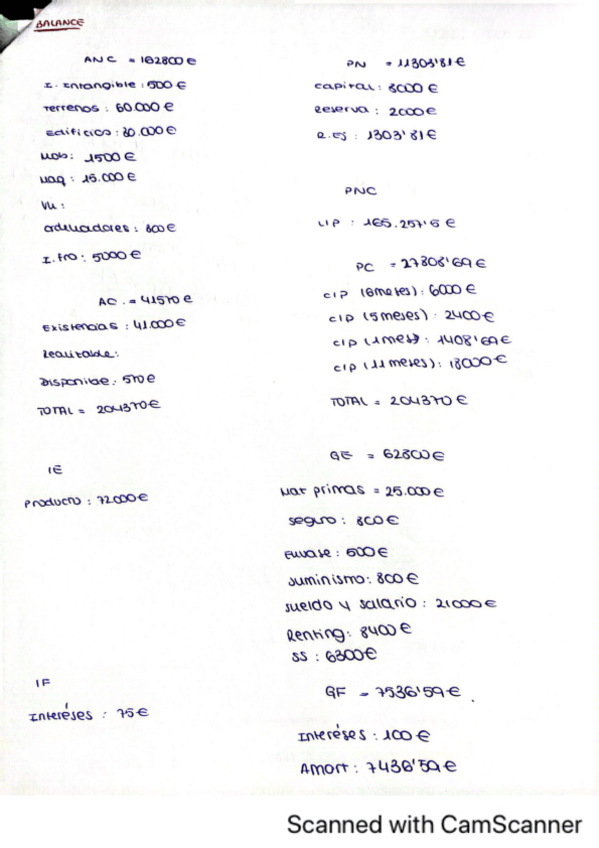 BALANCE
ANC = 162800 €
I. Intangible : 500 €
Terrenos : 60.000 €
Edificios : 80.000 €
Mob : 1500 €
Maq : 15.000 €
VU :
ordenadores : 800 €
I. Fro : 5000 €
AC = 41570 €
Existencias : 41.000 €
Realizable :
Disponible : 570 €
TOTAL = 204370 €
PN = 11303'81 €
capital : 8000 €
Reserva : 2000 €
R. Ej : 1303'81 €
PNC
L/P : 165.257'5 €
PC = 27808'69 €
c/p (6 meses) : 6000 €
c/p (5 meses) : 2400 €
c/p (1 mes) : 1408'69 €
c/p (11 meses) : 18000 €
TOTAL = 204370 €
IE
Producto : 72.000 €
GE = 62800 €
Mat primas = 25.000 €
seguro : 800 €
Envase : 500 €
suministro : 800 €
sueldo y salario : 21000 €
Renting : 8400 €
SS : 6300 €
IF
Interéses : 75 €
GF = 7536'59 €
Interéses : 100 €
Amort : 7436'59 €
Scanned with CamScanner